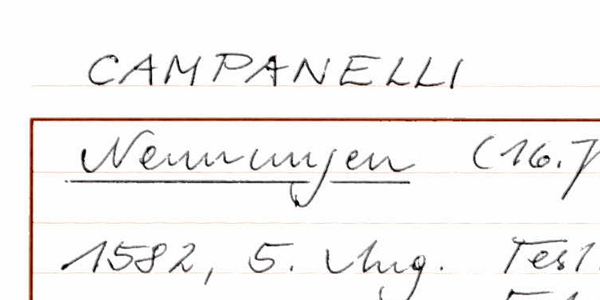 CAMPANELLI
Nennungen (16.
1582, 5. Aug. Test.